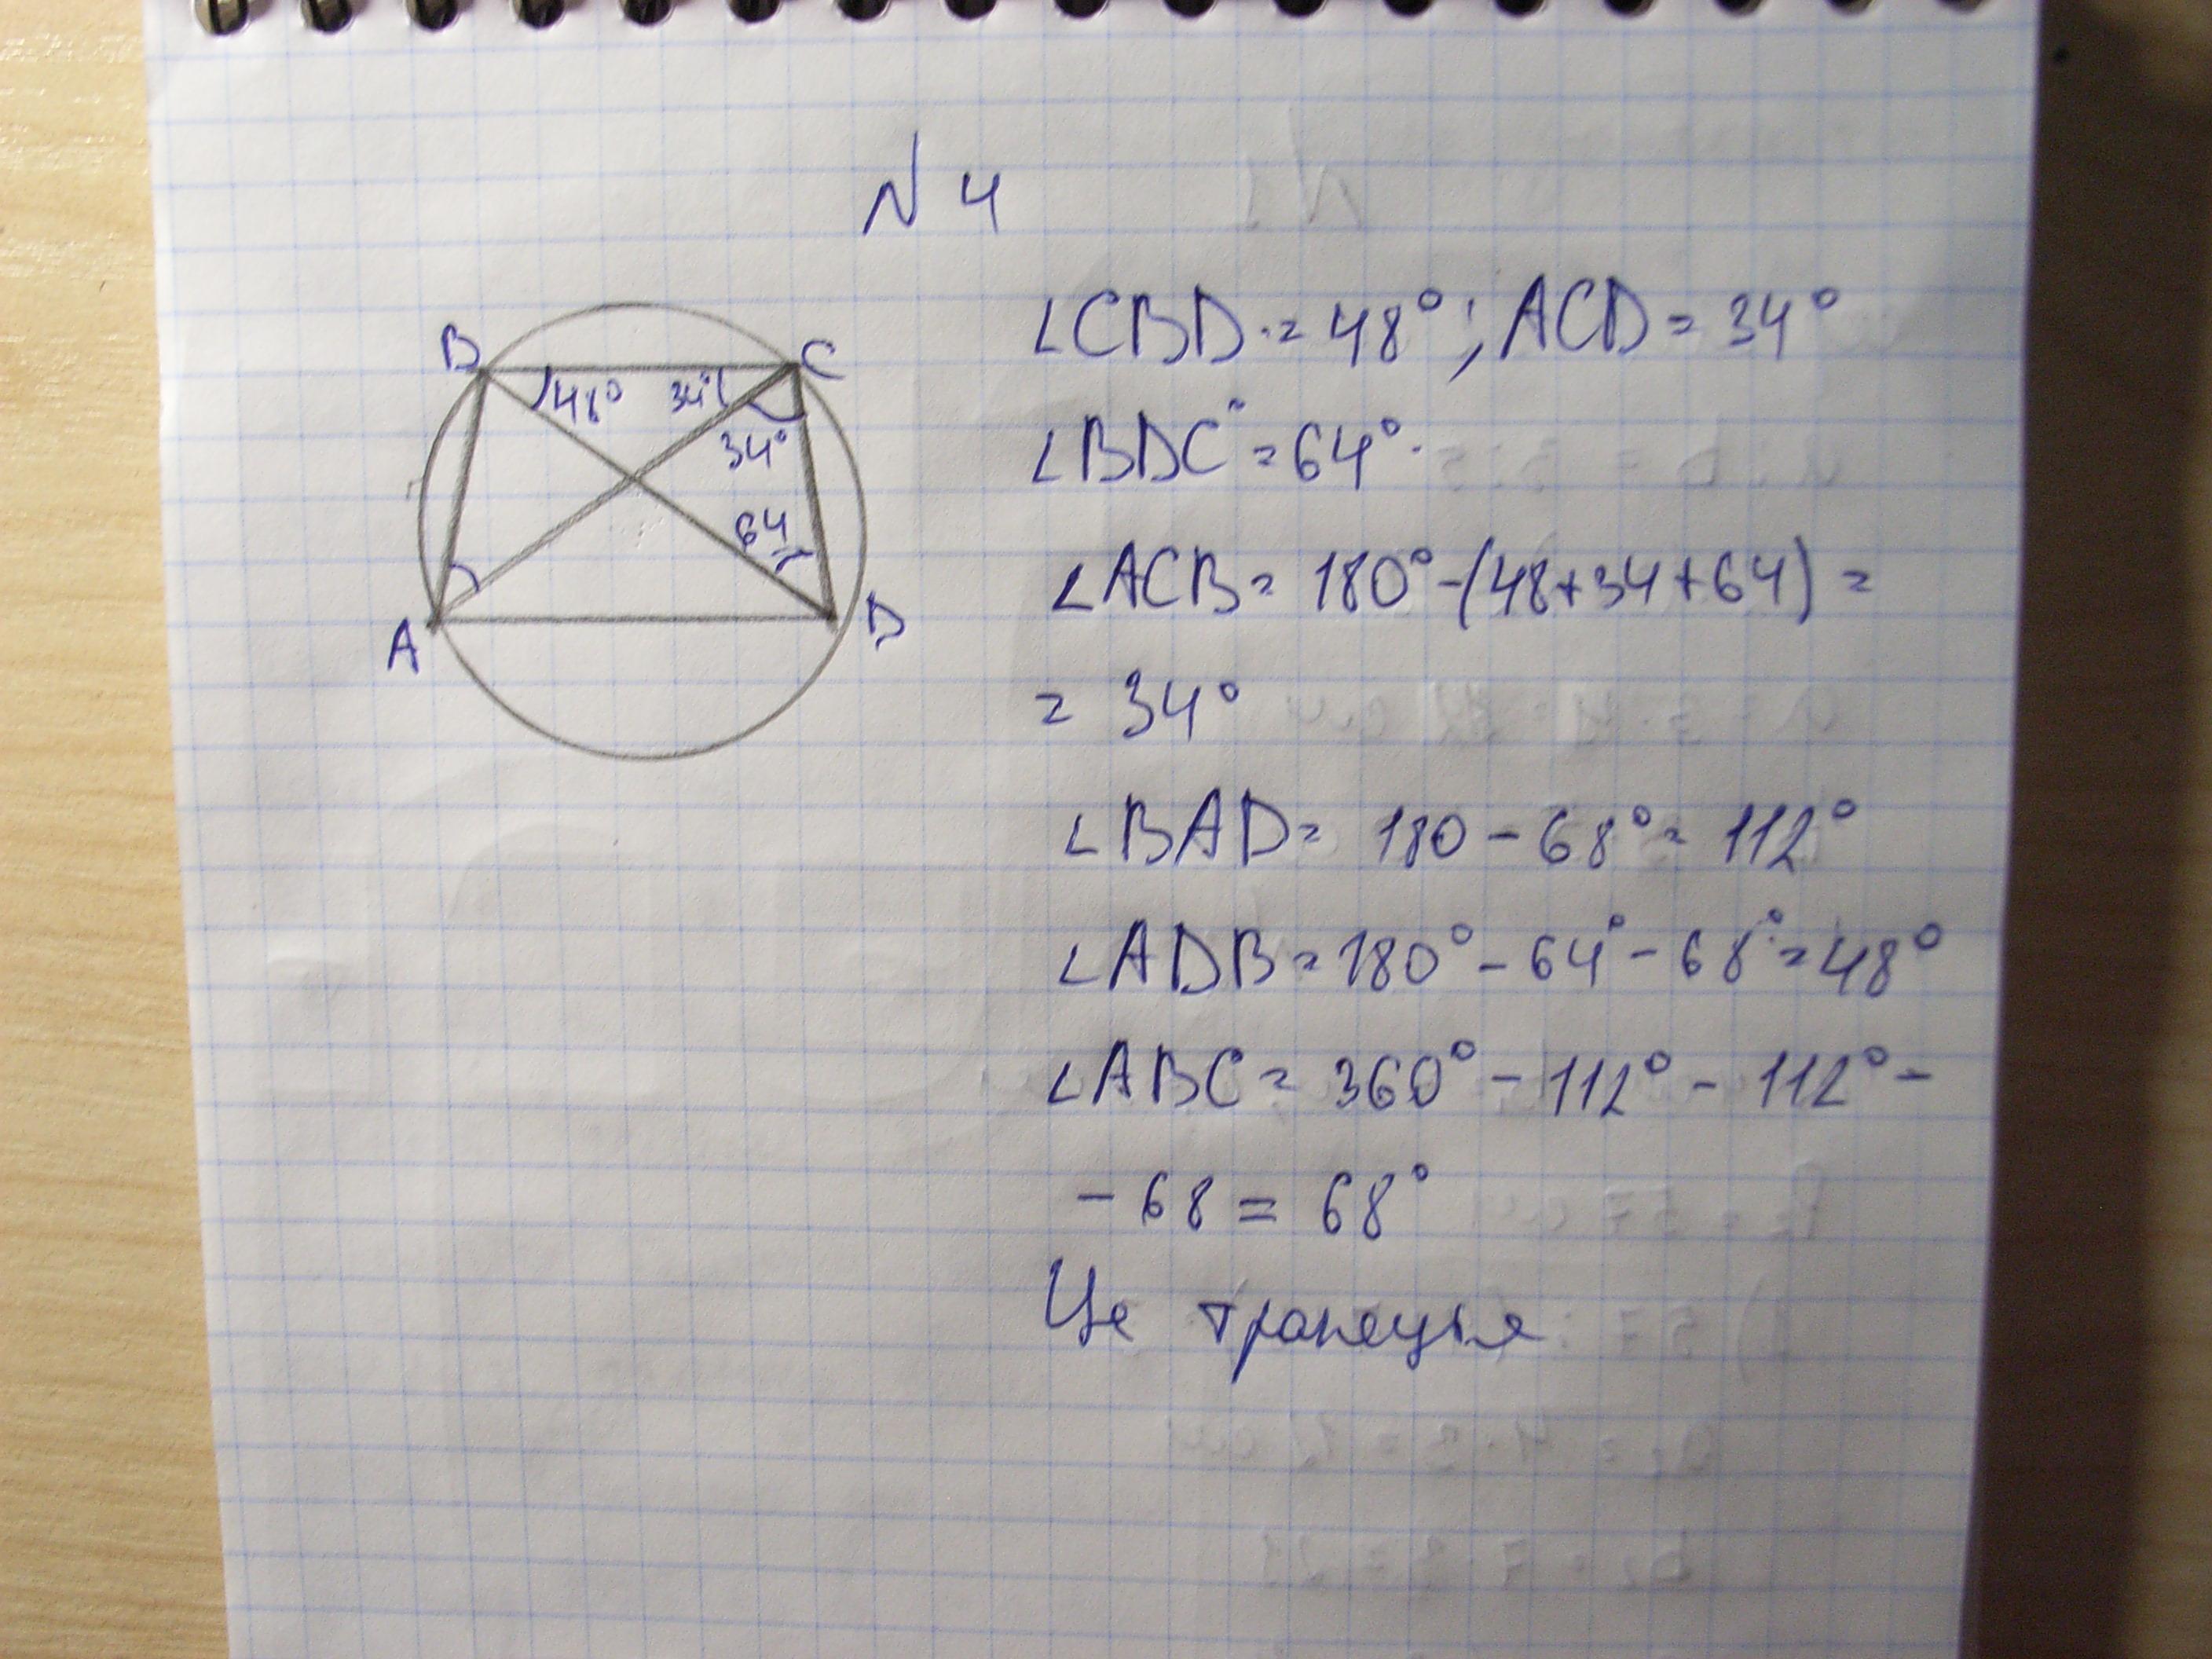 N 4
B
C
48°
34°
34°
64
A
D
∠CBD = 48°; ACD = 34°
∠BDC = 64°
∠ACB = 180° - (48 + 34 + 64) =
= 34°
∠BAD = 180 - 68° = 112°
∠ADB = 180° - 64° - 68° = 48°
∠ABC = 360° - 112° - 112° -
- 68 = 68°
Це трапеція